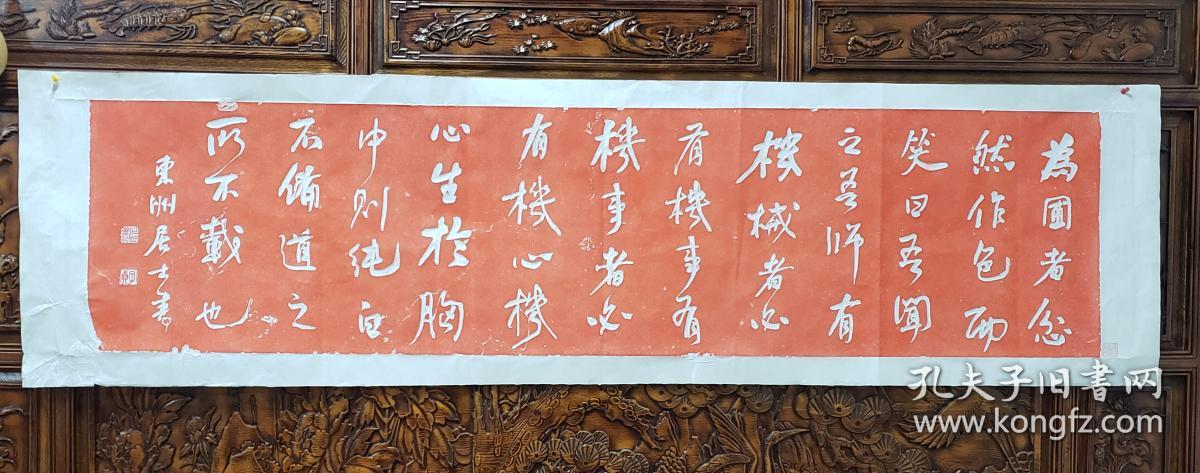 為圃者忿
然作色而
笑曰吾聞
之吾師有
機械者必
有機事有
機事者必
有機心機
心生於胸
中則純白
不備道之
所不載也
東洲居士書
孔夫子旧书网
www.kongfz.com